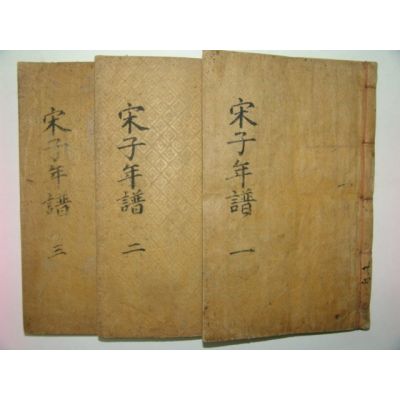 宋子年譜 一
宋子年譜 二
宋子年譜 三